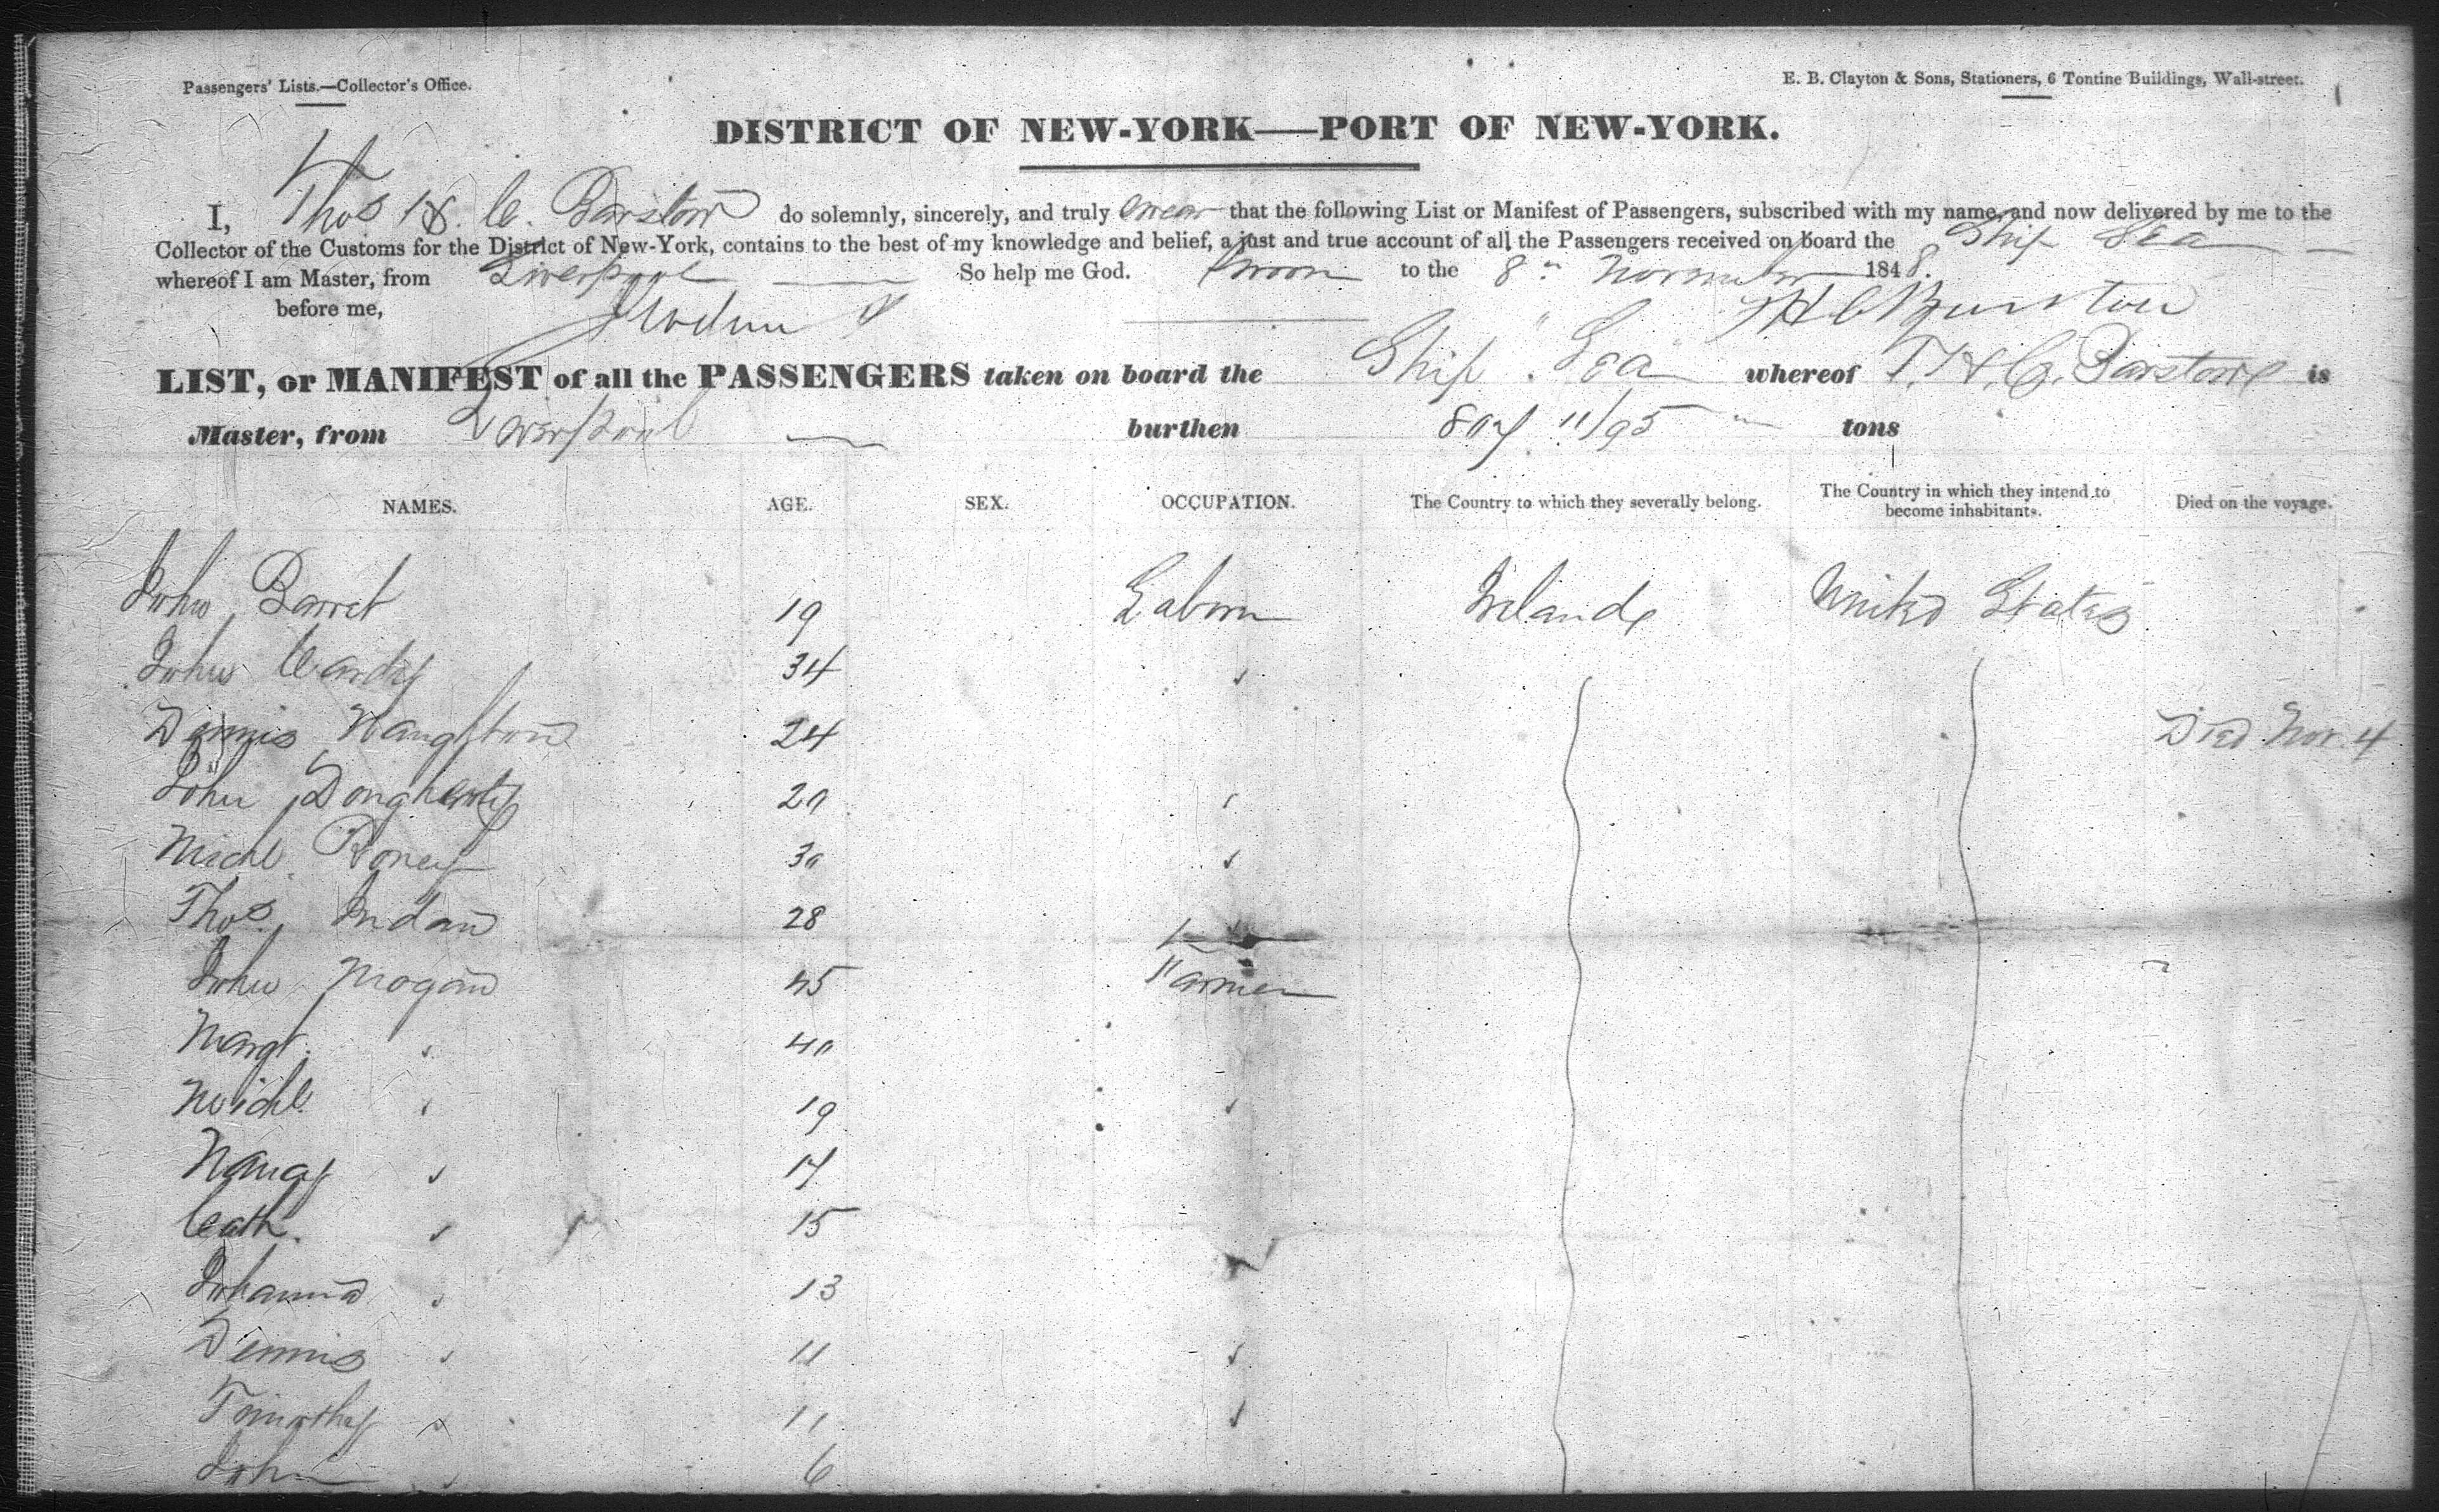 Passengers' Lists.—Collector's Office.
E. B. Clayton & Sons, Stationers, 6 Tontine Buildings, Wall-street.
DISTRICT OF NEW-YORK—PORT OF NEW-YORK.
I, Thos H. C. Barstow do solemnly, sincerely, and truly swear that the following List or Manifest of Passengers, subscribed with my name, and now delivered by me to the
Collector of the Customs for the District of New-York, contains to the best of my knowledge and belief, a just and true account of all the Passengers received on board the Ship Sea
whereof I am Master, from Liverpool So help me God. Sworn to the 8th November 1848.
before me, T H C Barstow
LIST, or MANIFEST of all the PASSENGERS taken on board the Ship Sea whereof T. H. C. Barstow is
Master, from Liverpool burthen 807 11/95 tons
NAMES. AGE. SEX. OCCUPATION. The Country to which they severally belong. The Country in which they intend to become inhabitants. Died on the voyage.
John Barret 19 Laborer Ireland United States
John Cardy 34 "
Dennis Naughton 24 Died Nov. 4
John Dougherty 20 "
Michl. Roney 30 "
Thos. 28 "
John Mogan 45 Farmer
Margt. " 40
Michl. " 19 "
Nancy " 17
Cath. " 15
Johanna " 13
Dennis " 11 "
Timothy " 11 "
John " 6